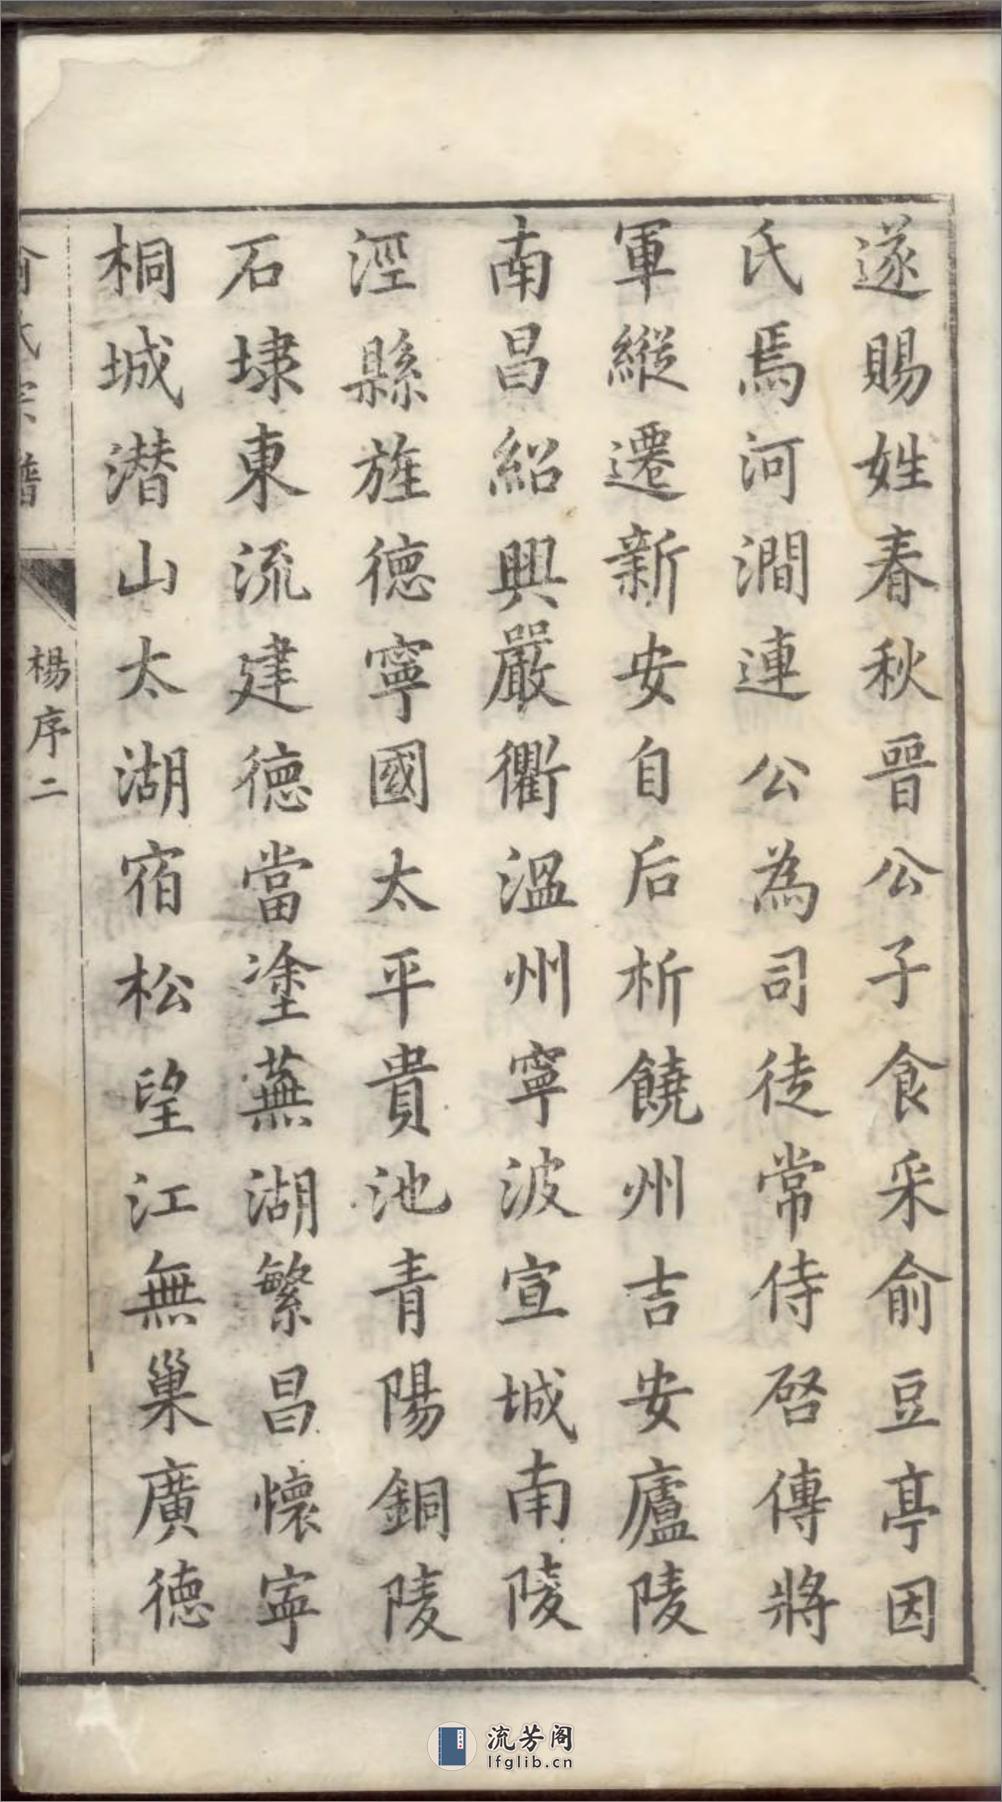 遂賜姓春秋晉公子食采俞豆亭因
氏焉河澗連公為司徒常侍啓傳將
軍縱遷新安自后析饒州吉安廬陵
南昌紹興嚴衢溫州寧波宣城南陵
涇縣旌德寧國太平貴池青陽銅陵
石埭東流建德當塗蕪湖繁昌懷寧
桐城潜山太湖宿松望江無巢廣德
氏宗譜
楊序二
流芳阁
lfglib.cn